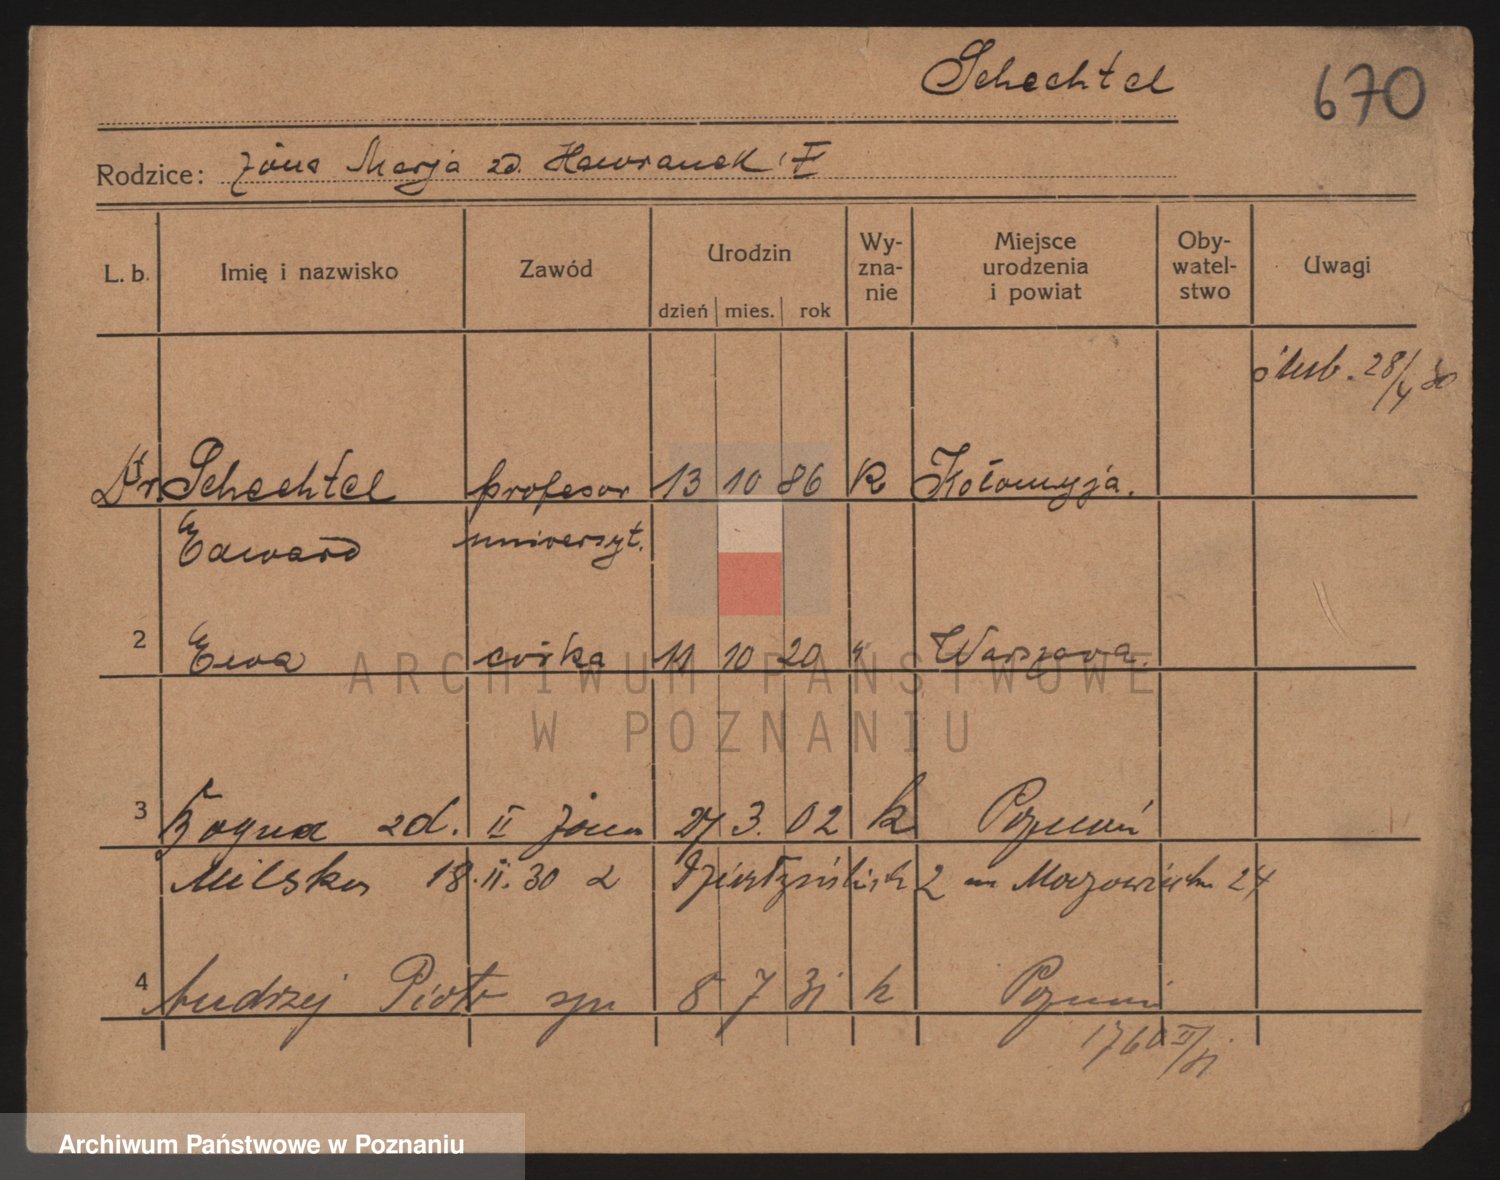 Schechtel
670
Rodzice: żona Marja zd. Hawranek I
L. b. Imię i nazwisko Zawód Urodzin Wy-zna-nie Miejsce urodzenia i powiat Oby-watel-stwo Uwagi
dzień mies. rok
ślub. 28/V 30
Dr. Schechtel profesor 13 10 86 R Kołomyja.
Edward uniwersyt.
2 Ewa córka 11 10 20 " Warszawa.
ARCHIWUM PAŃSTWOWE
W POZNANIU
3 Bogna zd. II żona 27 3. 02 k Poznań
Milska 18.II.30 z 2 Mazowiecka 24
4 Andrzej Piotr syn 8 7 31 k Poznań
Archiwum Państwowe w Poznaniu